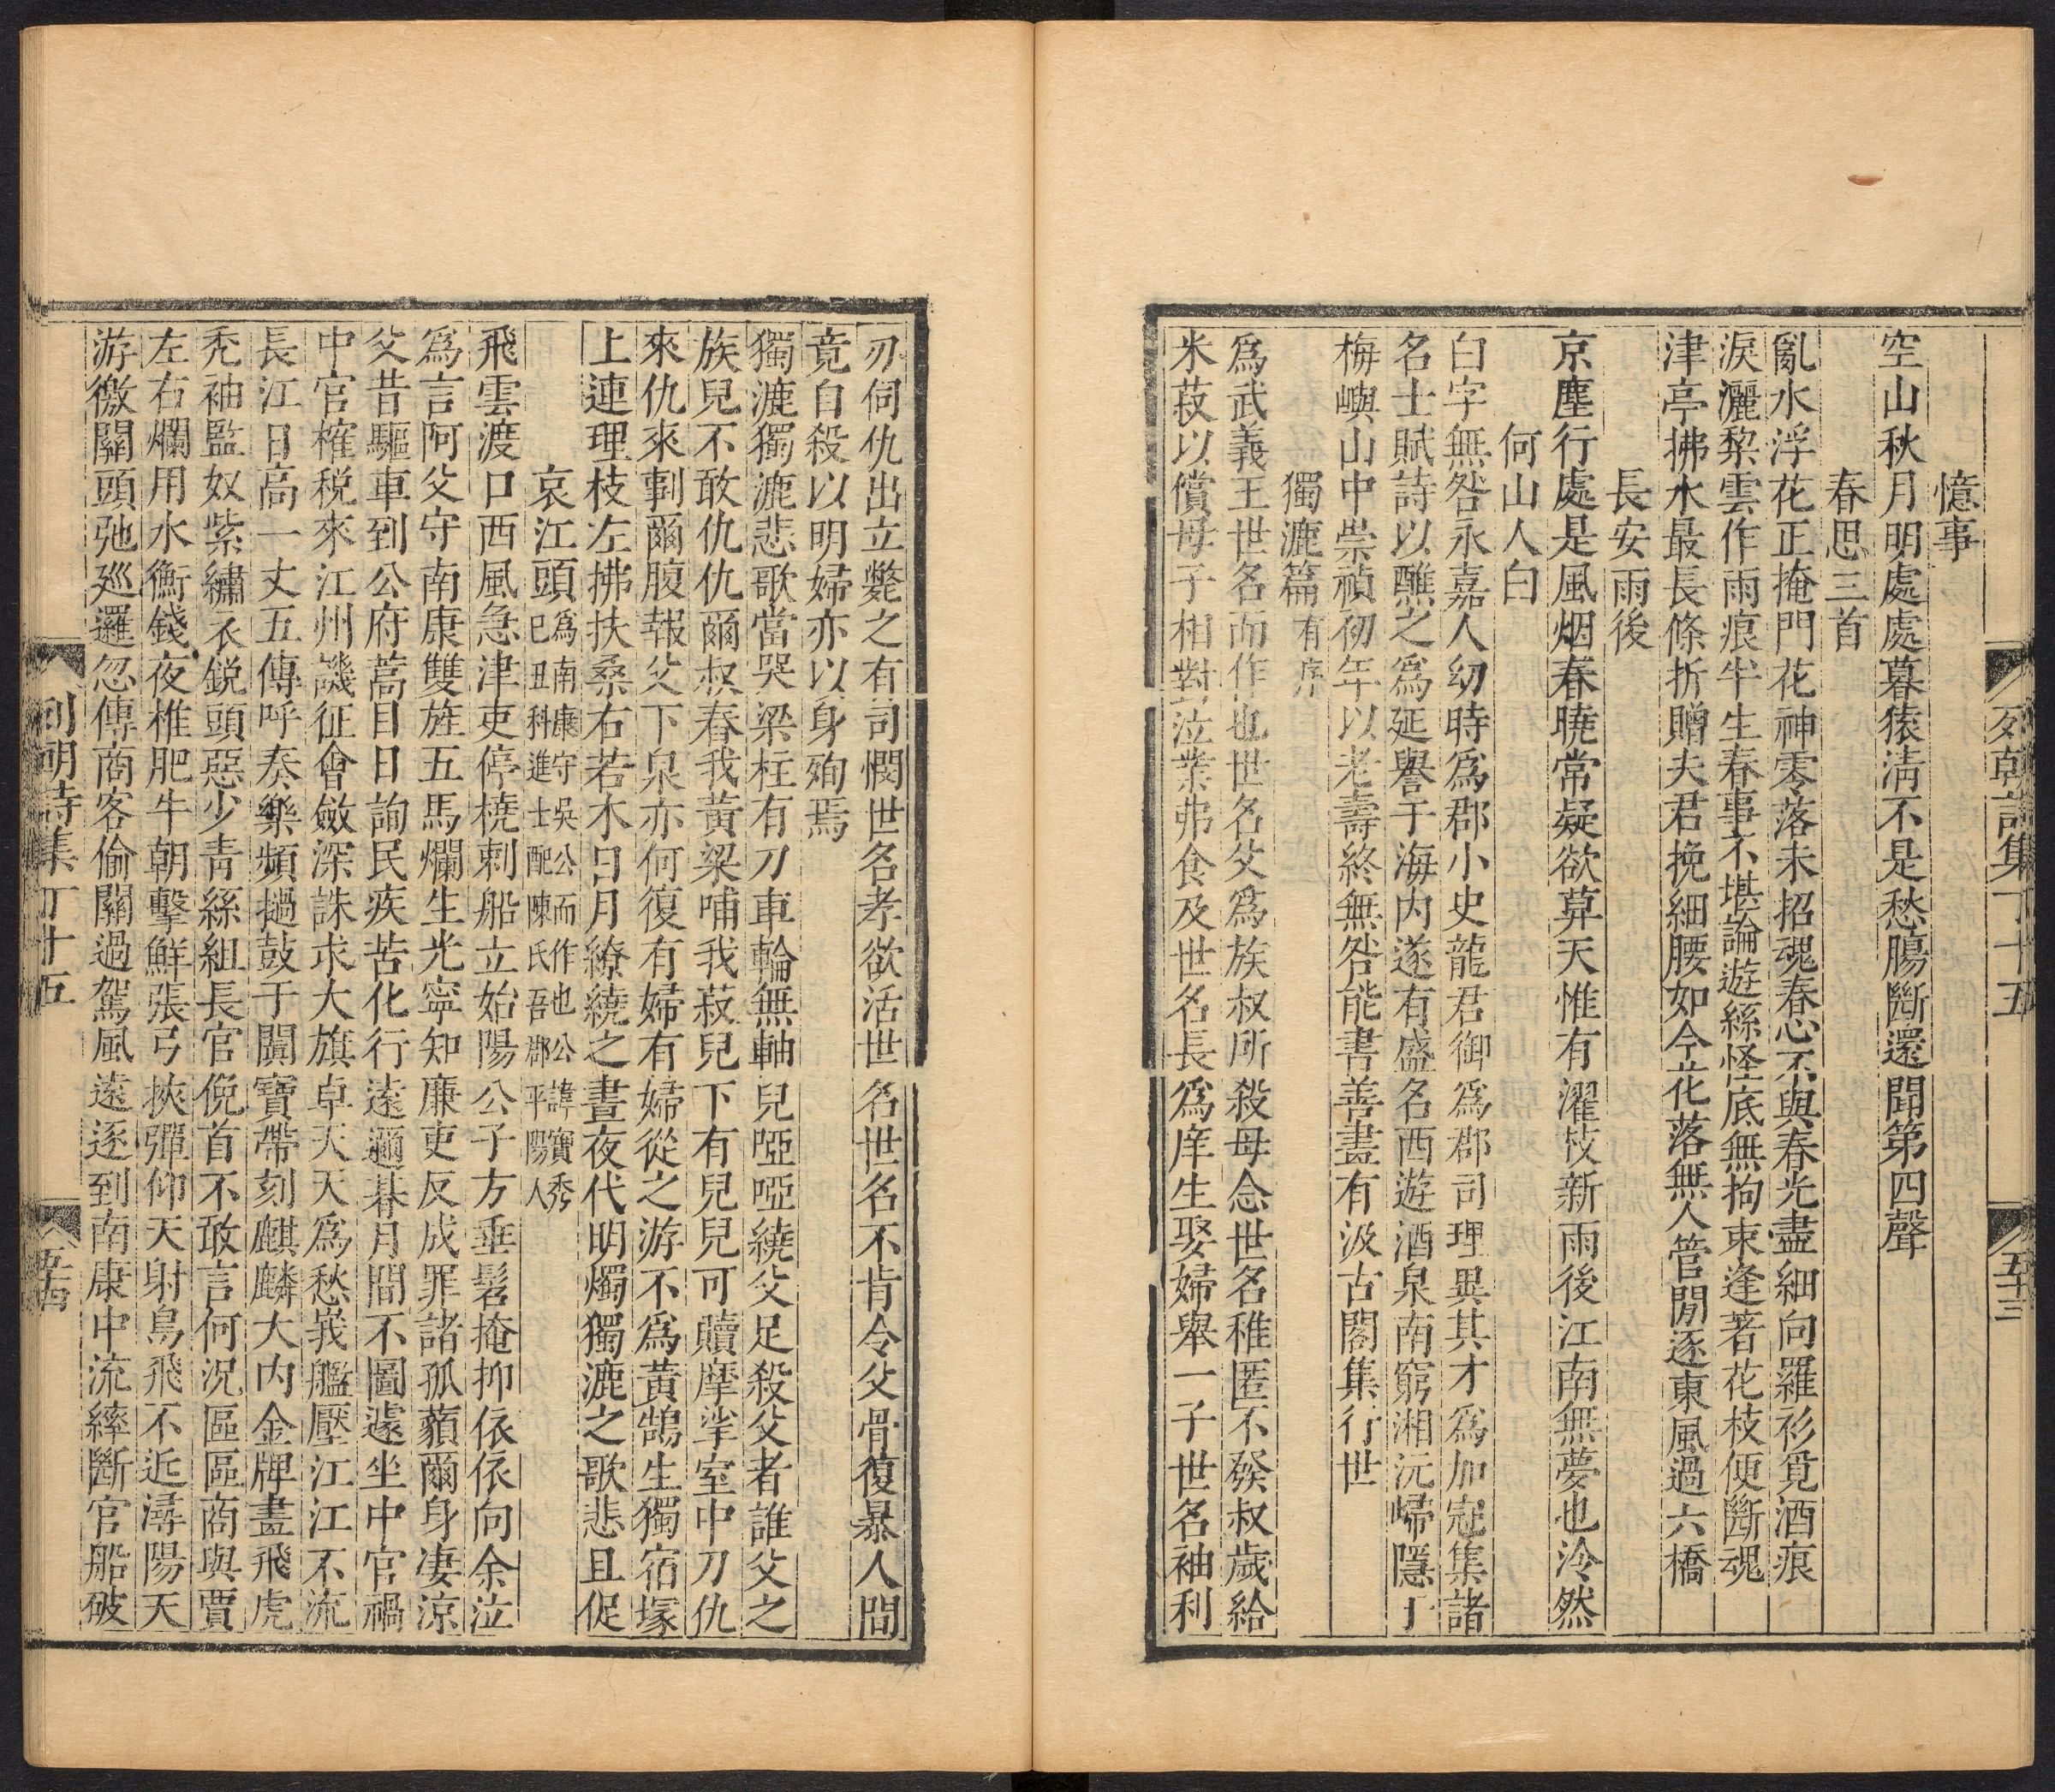 列朝詩集丁十五
五十三
憶事
空山秋月明處處暮猿淸不是愁腸斷還聞第四聲
春思三首
亂水浮花正掩門花神零落未招魂春心不與春光盡細向羅衫覓酒痕
淚灑棃雲作雨痕半生春事不堪論遊絲怪底無拘束逢著花枝便斷魂
津亭拂水最長條折贈夫君挽細腰如今花落無人管閒逐東風過六橋
長安雨後
京塵行處是風烟春曉常疑欲葬天惟有濯枝新雨後江南無夢也泠然
何山人白
白字無咎永嘉人幼時爲郡小史龍君御爲郡司理異其才爲加冠集諸
名士賦詩以醮之爲延譽于海内遂有盛名西遊酒泉南窮湘沅歸隱于
梅嶼山中崇禎初年以老壽終無咎能書善畫有汲古閣集行世
獨漉篇有序
爲武義王世名而作也世名父爲族叔所殺母念世名稚匿不發叔歲給
米菽以償母子相對泣業弗食及世名長爲庠生娶婦舉一子世名袖利
刃伺仇出立斃之有司憫世名孝欲活世名世名不肯令父骨復暴人間
竟自殺以明婦亦以身殉焉
獨漉獨漉悲歌當哭梁柱有刀車輪無軸兒啞啞繞父足殺父者誰父之
族兒不敢仇仇爾叔舂我黃粱哺我菽兒下有兒兒可贖摩挲室中刀仇
來仇來剚爾腹報父下泉亦何復有婦有婦從之游不爲黃鵠生獨宿塚
上連理枝左拂扶桑右若木日月繚繞之晝夜代明燭獨漉之歌悲且促
哀江頭爲南康守吳公而作也公諱寶秀
巳丑科進士配陳氏吾郡平陽人
飛雲渡口西風急津吏停橈剌船立始陽公子方垂髫掩抑依依向余泣
爲言阿父守南康雙旌五馬爛生光寧知廉吏反成罪諸孤藐爾身凄涼
父昔驅車到公府蒿目日詢民疾苦化行遠邇朞月間不圖遽坐中官禍
中官榷税來江州譏征會斂深誅求大旗卓天天爲愁峩艦壓江江不流
長江日高一丈五傳呼奏樂頻撾鼓于闐寶帶刻麒麟大内金牌畫飛虎
禿袖監奴紫繡衣鋭頭惡少青絲組長官俛首不敢言何況區區商與賈
左右爛用水衡錢夜椎肥牛朝擊鮮張弓挾彈仰天射鳥飛不近潯陽天
游徼關頭弛廵邏忽傳商客偷關過駕風遠逐到南康中流繂斷官船破
列朝詩集丁十五
五十四